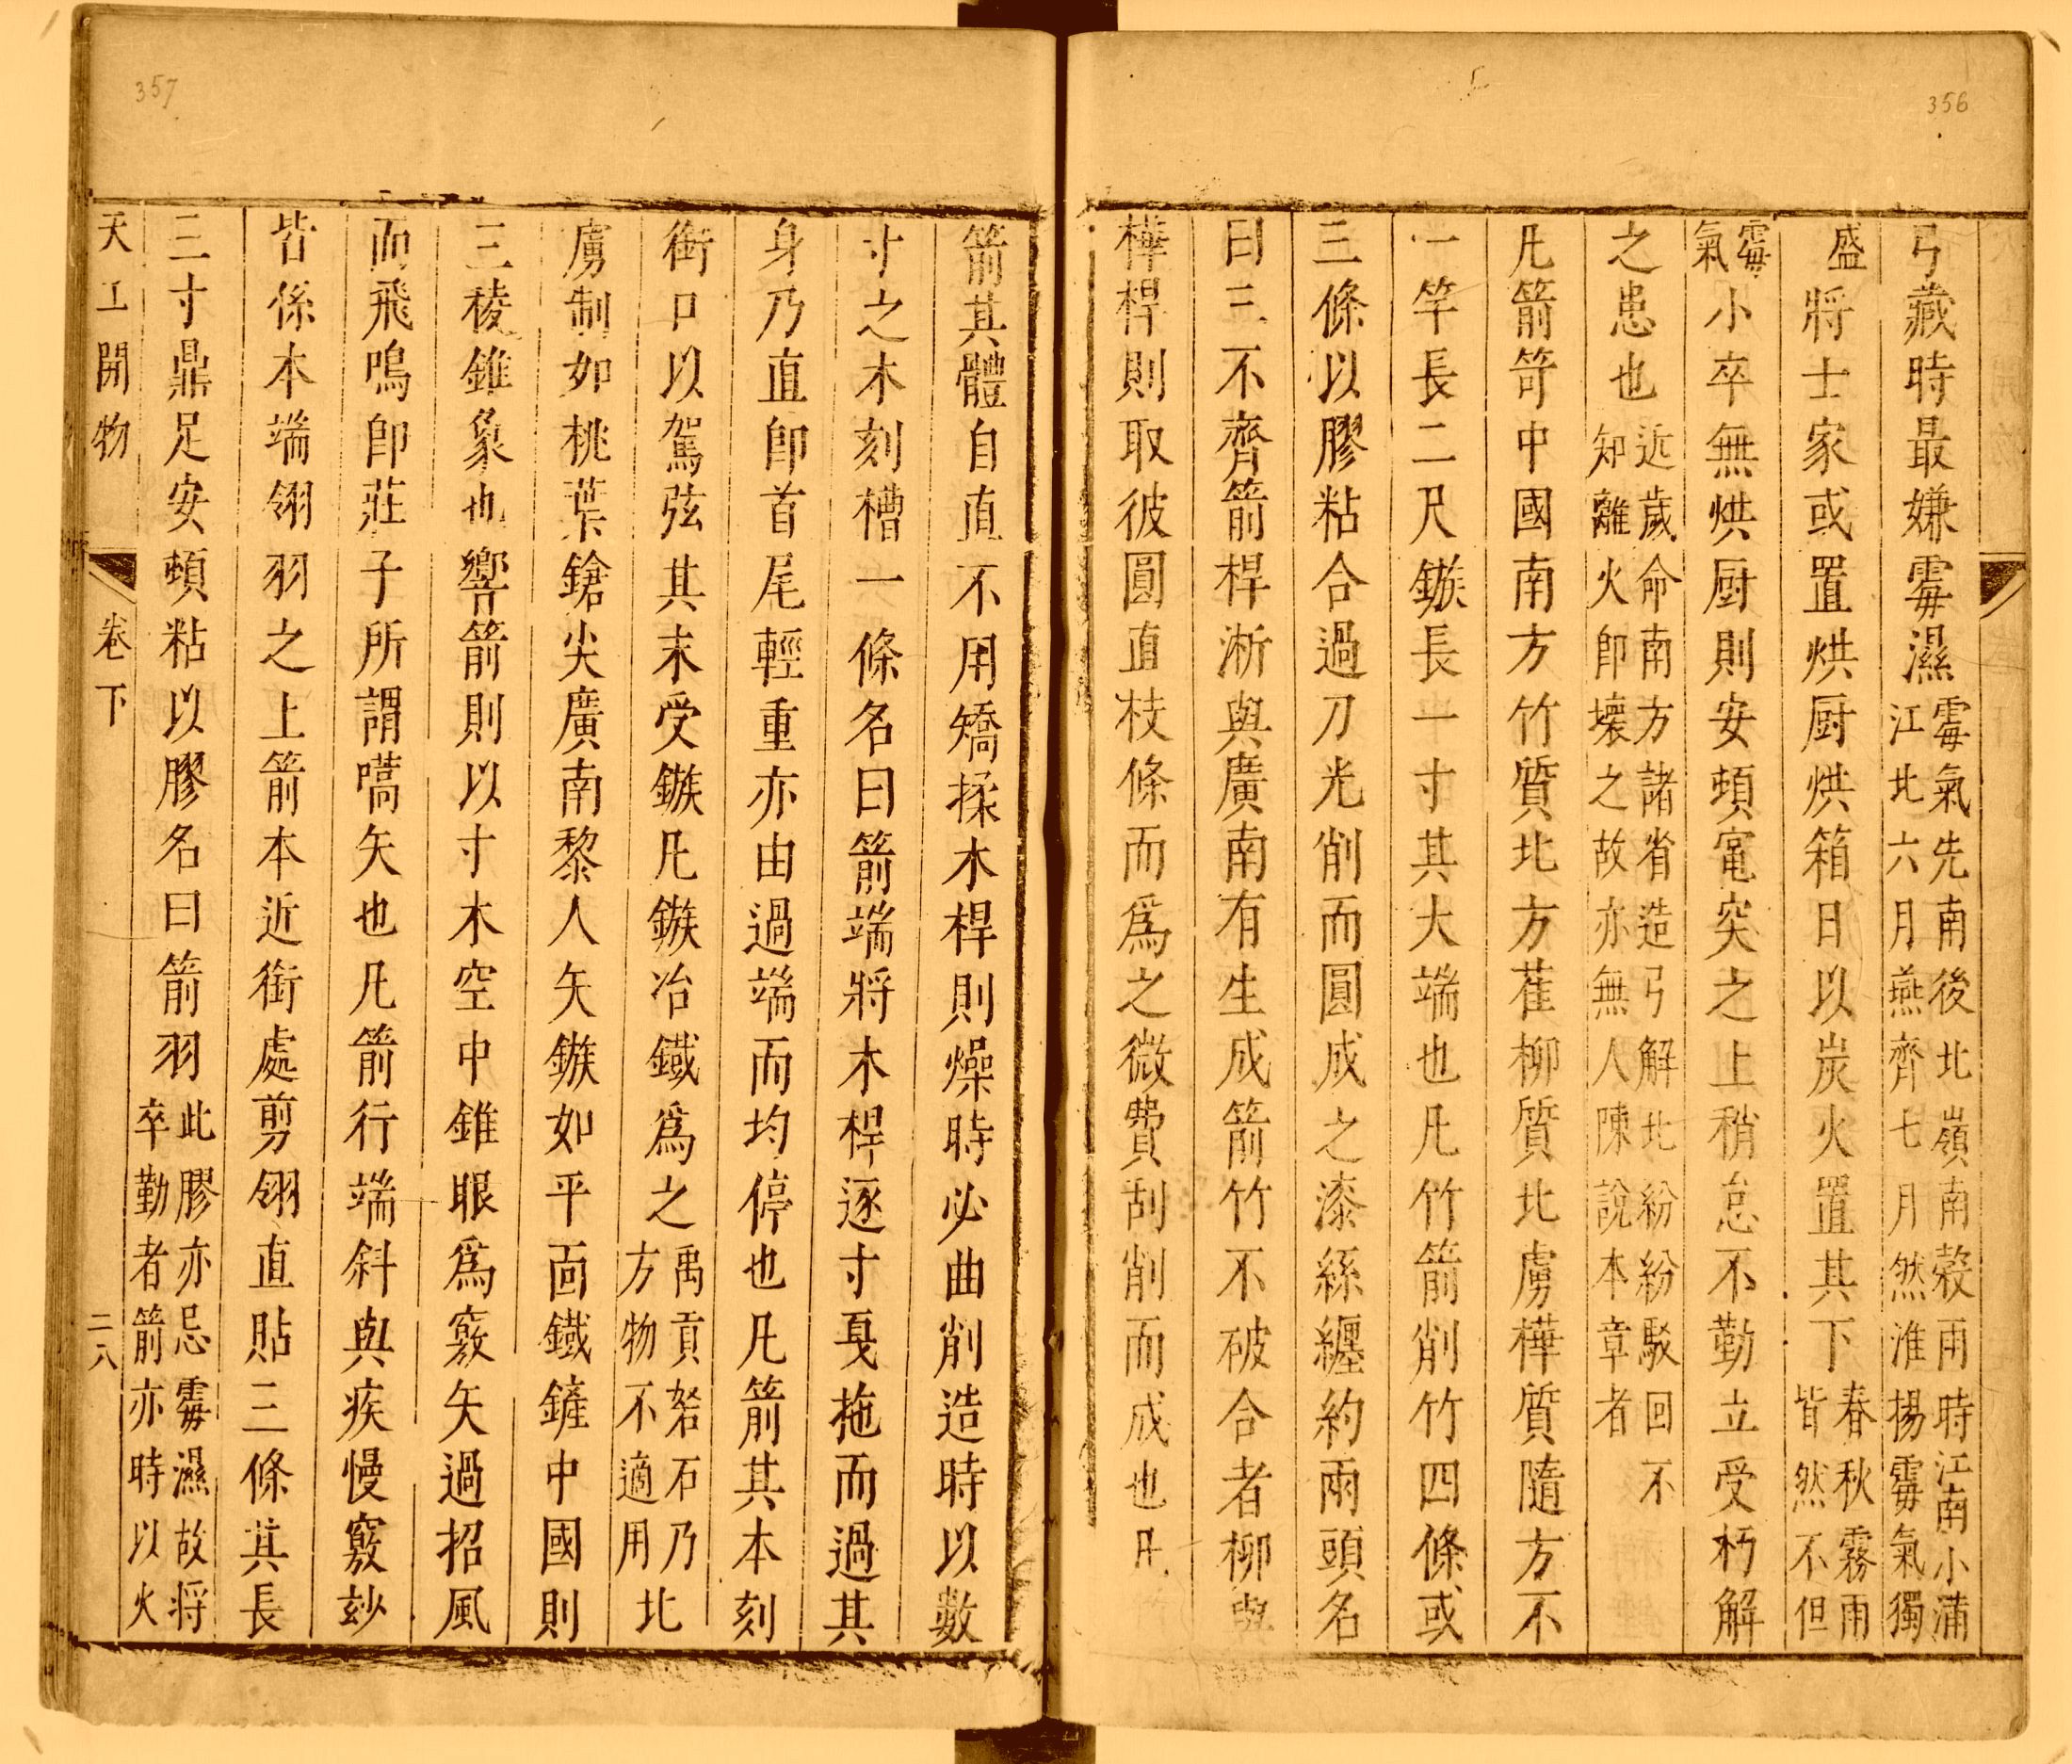 356
弓藏時最嫌霉濕霉氣先南後北嶺南穀雨時江南小滿江北六月燕齊七月然淮揚霉氣獨
盛將士家或置烘厨烘箱日以炭火置其下春秋霧雨皆然不但
霉氣小卒無烘厨則安頓竃突之上稍怠不勤立受朽解
之患也近歲命南方諸省造弓解北紛紛駁回不知離火即壞之故亦無人陳說本章者
凡箭笴中國南方竹質北方萑柳質北虜樺質隨方不
一竿長二尺鏃長一寸其大端也凡竹箭削竹四條或
三條以膠粘合過刀光削而圓成之漆絲纏約兩頭名
曰三不齊箭桿浙與廣南有生成箭竹不破合者柳與
樺桿則取彼圓直枝條而爲之微費刮削而成也凡
357
箭其體自直不用矯揉木桿則燥時必曲削造時以數
寸之木刻槽一條名曰箭端將木桿逐寸戛拖而過其
身乃直即首尾輕重亦由過端而均停也凡箭其本刻
銜口以駕弦其末受鏃凡鏃冶鐵爲之禹貢砮石乃方物不適用北
虜制如桃葉鎗尖廣南黎人矢鏃如平面鐵鏟中國則
三稜錐象也響箭則以寸木空中錐眼爲竅矢過招風
而飛鳴即莊子所謂嚆矢也凡箭行端斜與疾慢竅妙
皆係本端翎羽之上箭本近銜處剪翎直貼三條其長
三寸鼎足安頓粘以膠名曰箭羽此膠亦忌霉濕故将卒勤者箭亦時以火
天工開物 卷下 二八